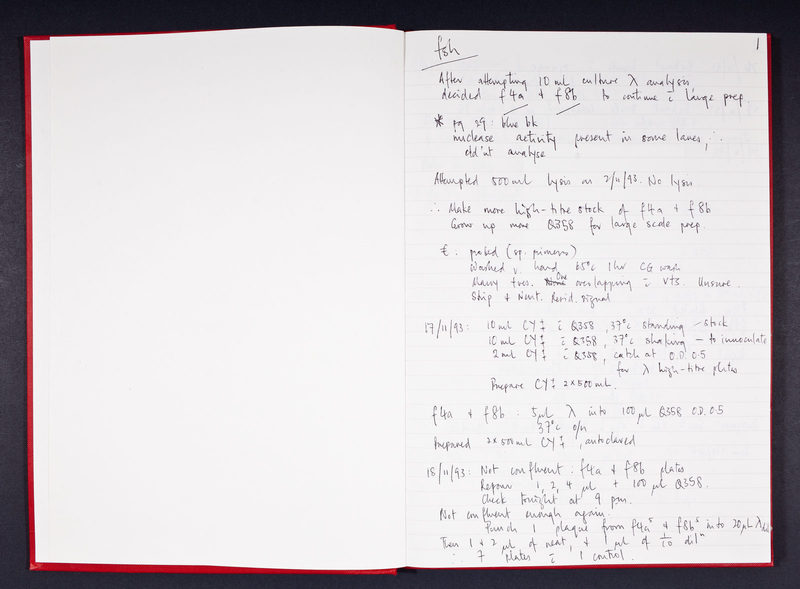 1
fsh
After attempting 10 ml culture λ analysis
decided f4a + f8b to continue c̄ large prep.
* pg 29: blue bk
nuclease activity present in some lanes, ∴
cld'nt analyse
Attempted 500ml lysis on 2/11/93. No lysis
∴ Make more high-titre stock of f4a + f8b
Grow up more Q358 for large scale prep.
€. probed (sp. primers)
Washed v. hard 65°c 1hr CG wash
Many +ves. One overlapping c̄ vts. Unsure.
Strip + Nent. Resid. signal
17/11/93: 10 ml CY‡ c̄ Q358, 37°c standing - stock
10 ml CY‡ c̄ Q358, 37°c shaking - to innoculate
2 ml CY‡ c̄ Q358, catch at O.D. 0.5
for λ high-titre plates
Prepare CY‡ 2x500ml.
f4a + f8b: 5µl λ into 100µl Q358 O.D. 0.5
37°c o/n
Prepared 2x500ml CY‡, autoclaved
18/11/93: Not confluent: f4a + f8b plates
Repour 1, 2, 4 µl + 100µl Q358.
Check tonight at 9 pm.
Not confluent enough again
Punch 1 plaque from f4aˢ + f8bˢ into 20µl λdil
Then 1 + 2 µl of neat, + 1 µl of 1/10 dilⁿ
∴ 7 plates c̄ 1 control.